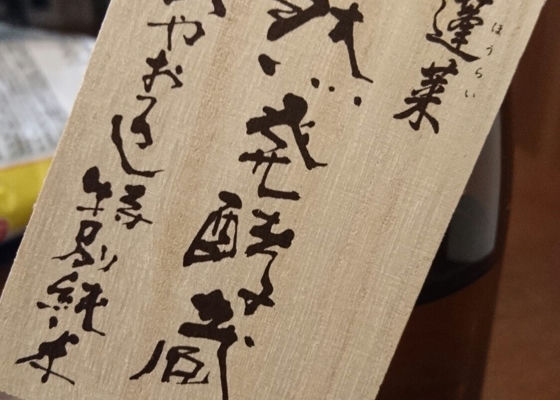 蓬莱
ほうらい
然発酵蔵
ひやおろし特別純米